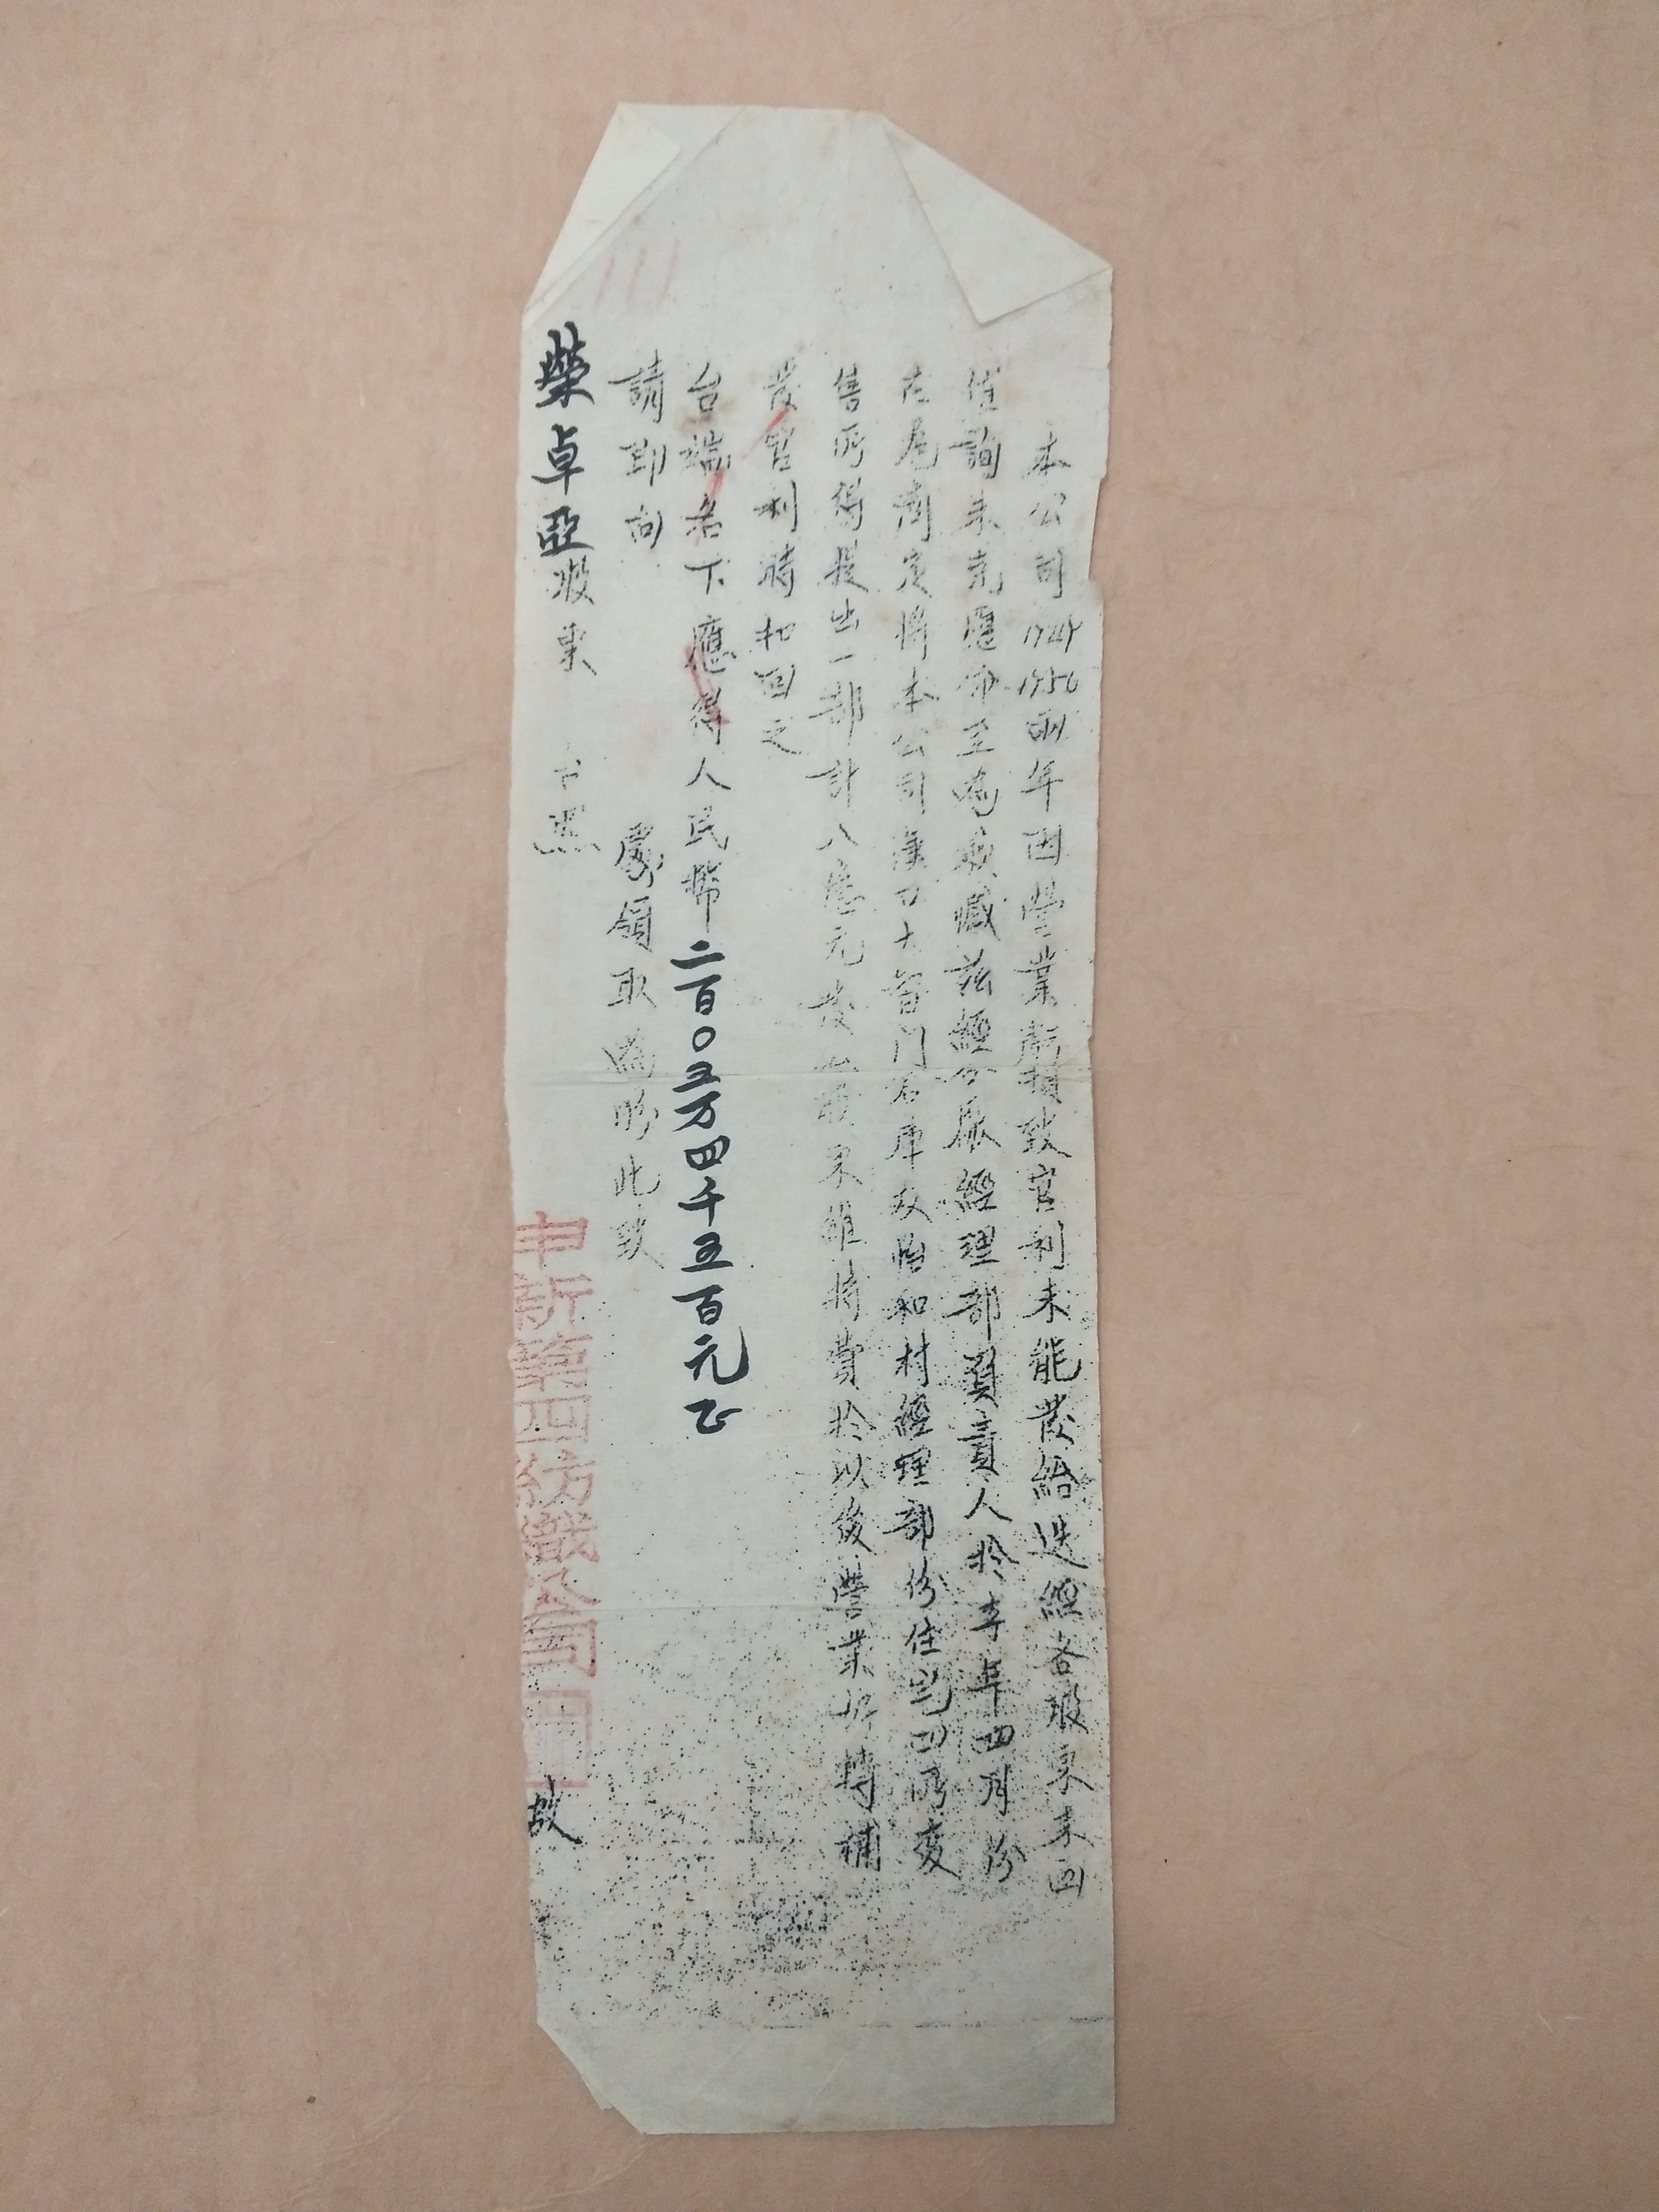 本公司1949 1950兩年因營業虧損致官利未能發給迭經各股東來函
催詢未克應命至為歉憾茲經各廠經理部負責人於本年四月份
在滬商定將本公司漢口大智門倉庫及怡和村經理部份住宅四所變
售所得提出一部計八億元發給股東維持費於以後營業好轉補
發官利時扣回之
台端名下應得人民幣二百〇五万四千五百元正
請即向 處領取為盼此致
榮卓亞股東 台照
申新第四紡織公司 啟